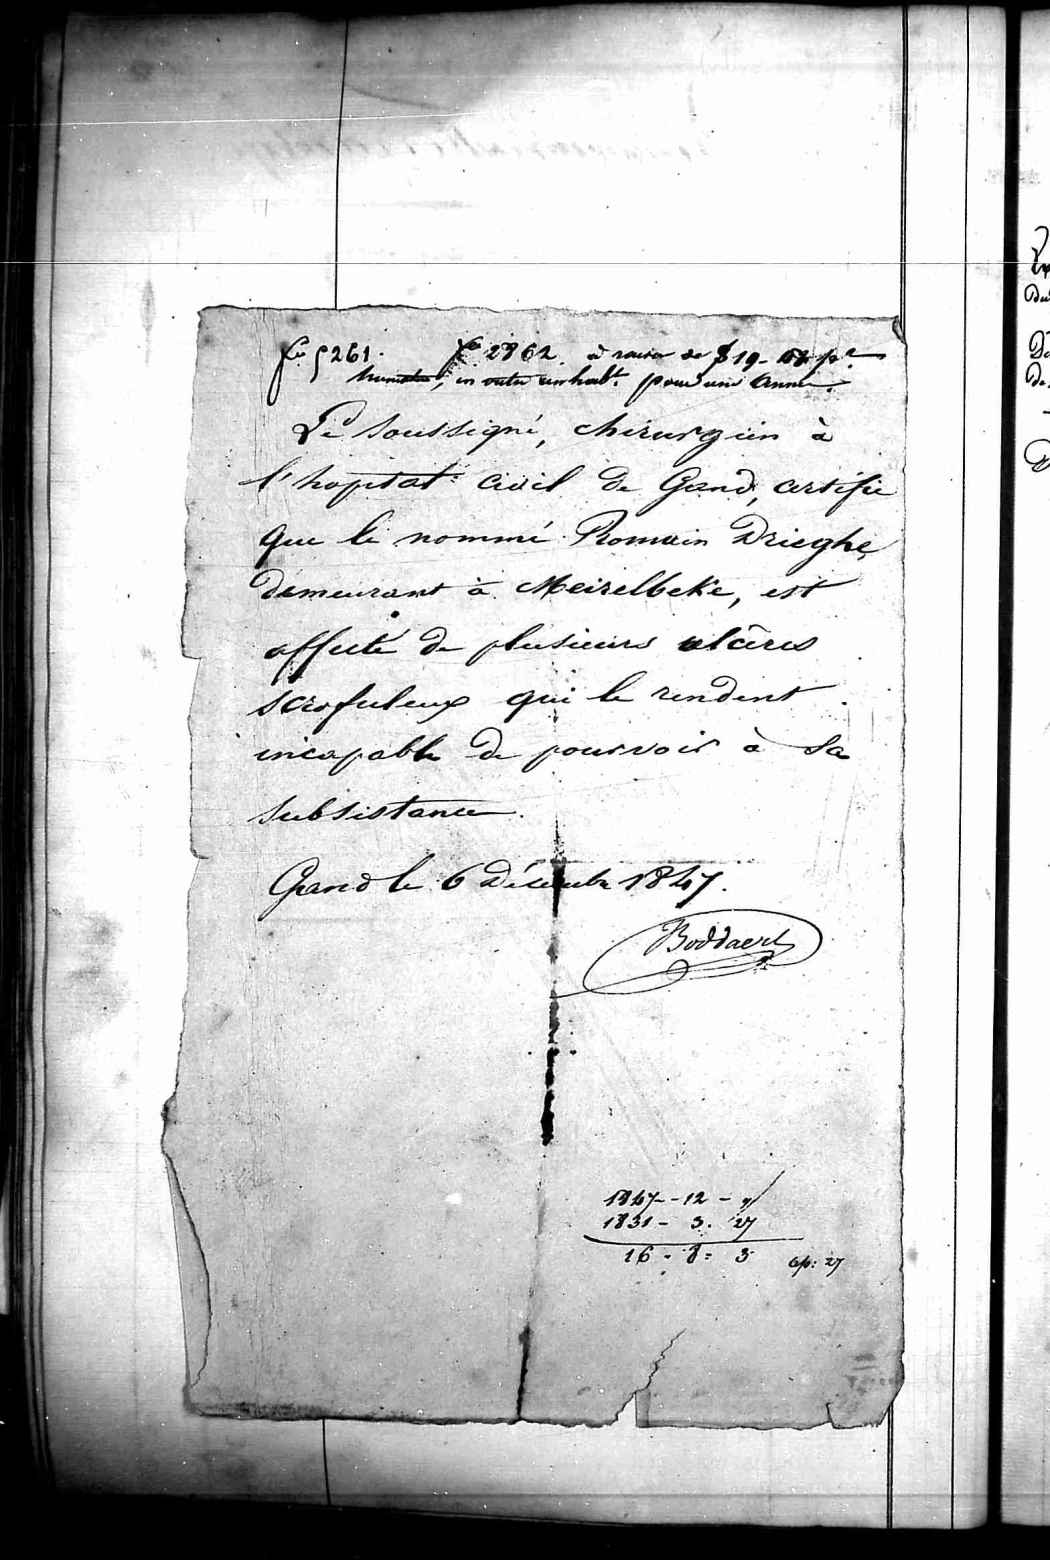 5261. 2862. à raison de $ 19-
pour une Année.
Le Soussigné, chirurgien à
l'hopital civil de Gand, certifie
que le nommé Romain Drieghe,
demeurant à Meirelbeke, est
affecté de plusieurs ulcères
scrofuleux qui le rendent
incapable de pourvoir à sa
subsistance.
Gand le 6 Décembre 1847.
Boddaert
1847 - 12 -
1831 - 3. 27
16 - 8 - 3 27